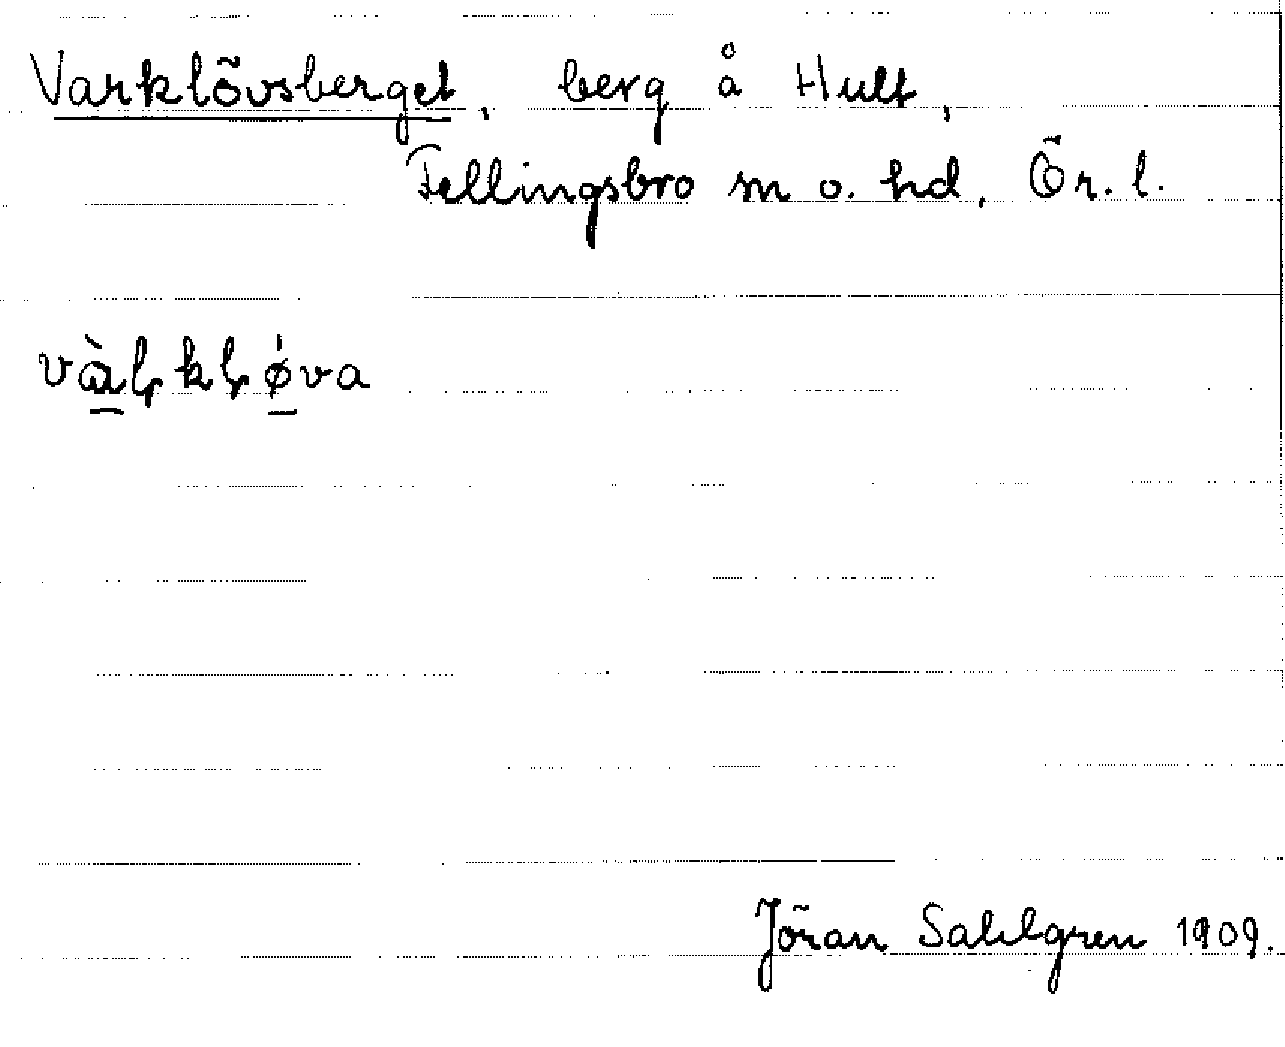 Varklövsberget, berg å Hult,
Fellingsbro sn o. hd, Ör. l.
Jöran Sahlgren 1909.